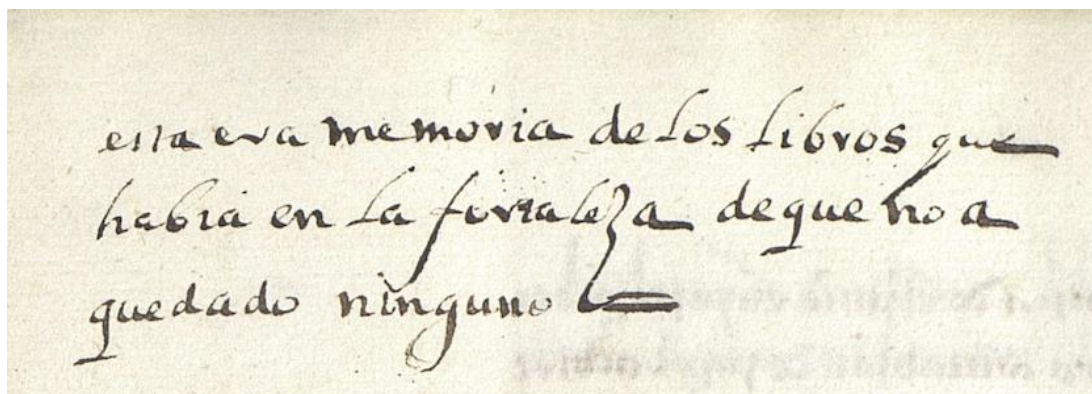 esta era memoria de los libros que
habia en la fortaleza de que no a
quedado ninguno